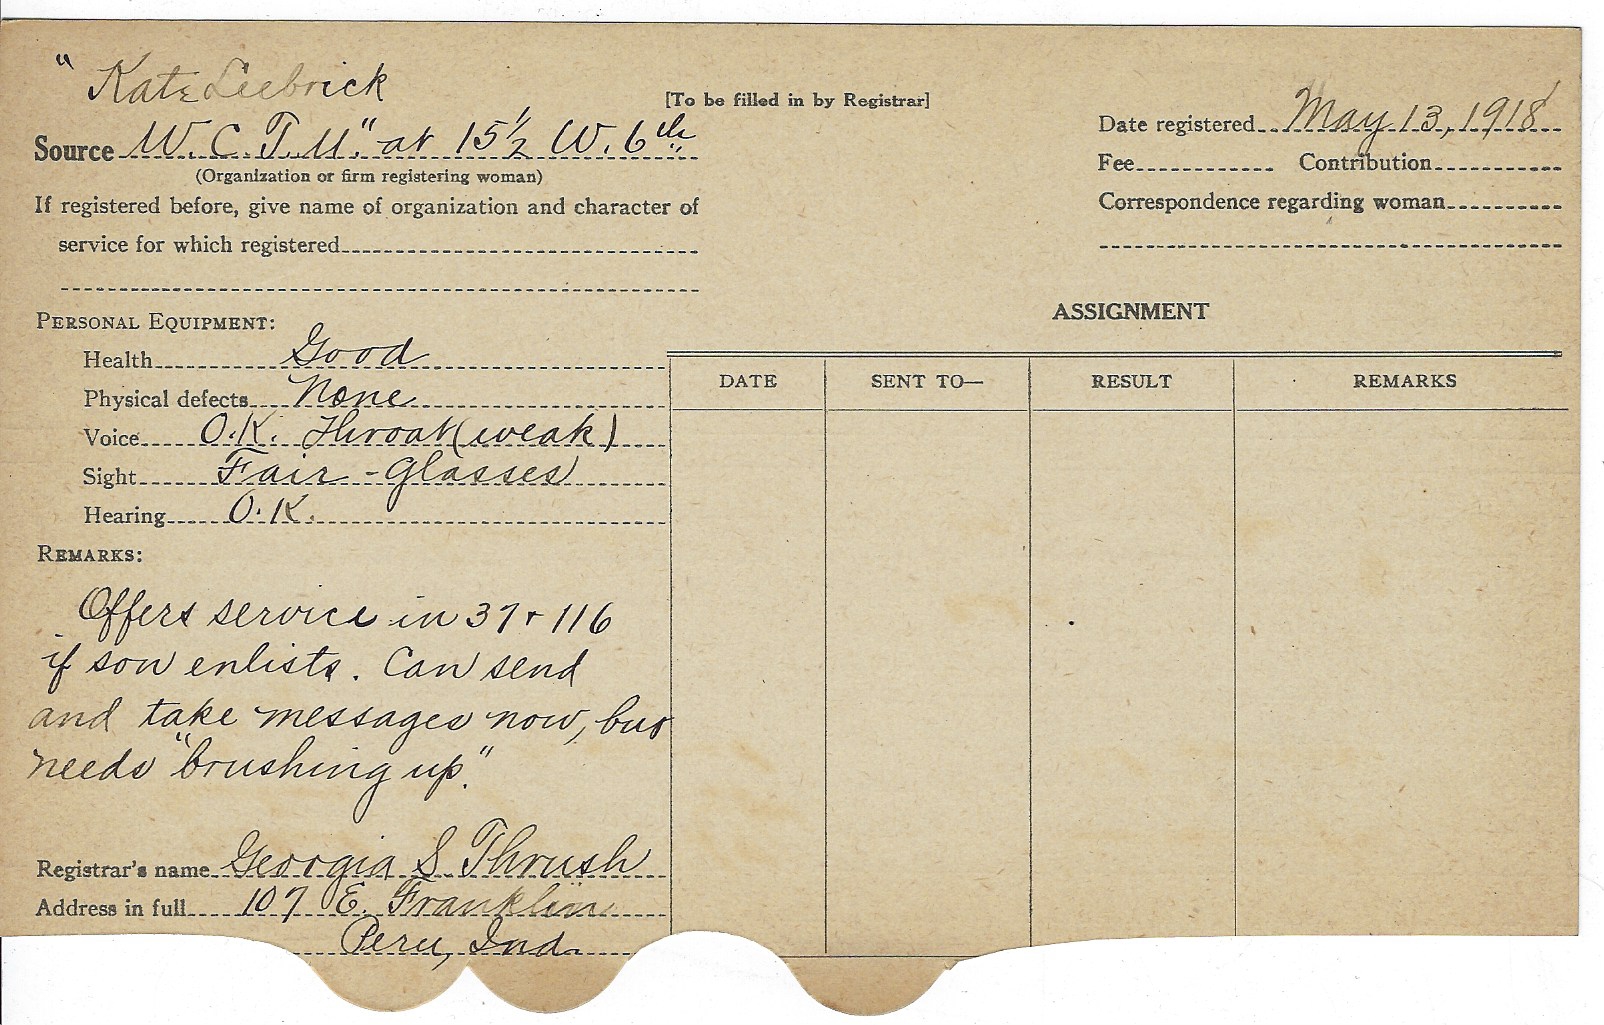 " Kate Leebrick
[To be filled in by Registrar]
Source W. C. T. U." at 15½ W. 6th
(Organization or firm registering woman)
If registered before, give name of organization and character of
service for which registered
Date registered May 13, 1918
Fee Contribution
Correspondence regarding woman
PERSONAL EQUIPMENT:
Health Good
Physical defects None
Voice O.K. Throat (weak)
Sight Fair - Glasses
Hearing O.K.
REMARKS:
Offers service in 37 + 116
if son enlists. Can send
and take messages now, but
needs "brushing up."
Registrar's name Georgia S. Thrush
Address in full 107 E. Franklin
Peru, Ind.
ASSIGNMENT
DATE SENT TO— RESULT REMARKS